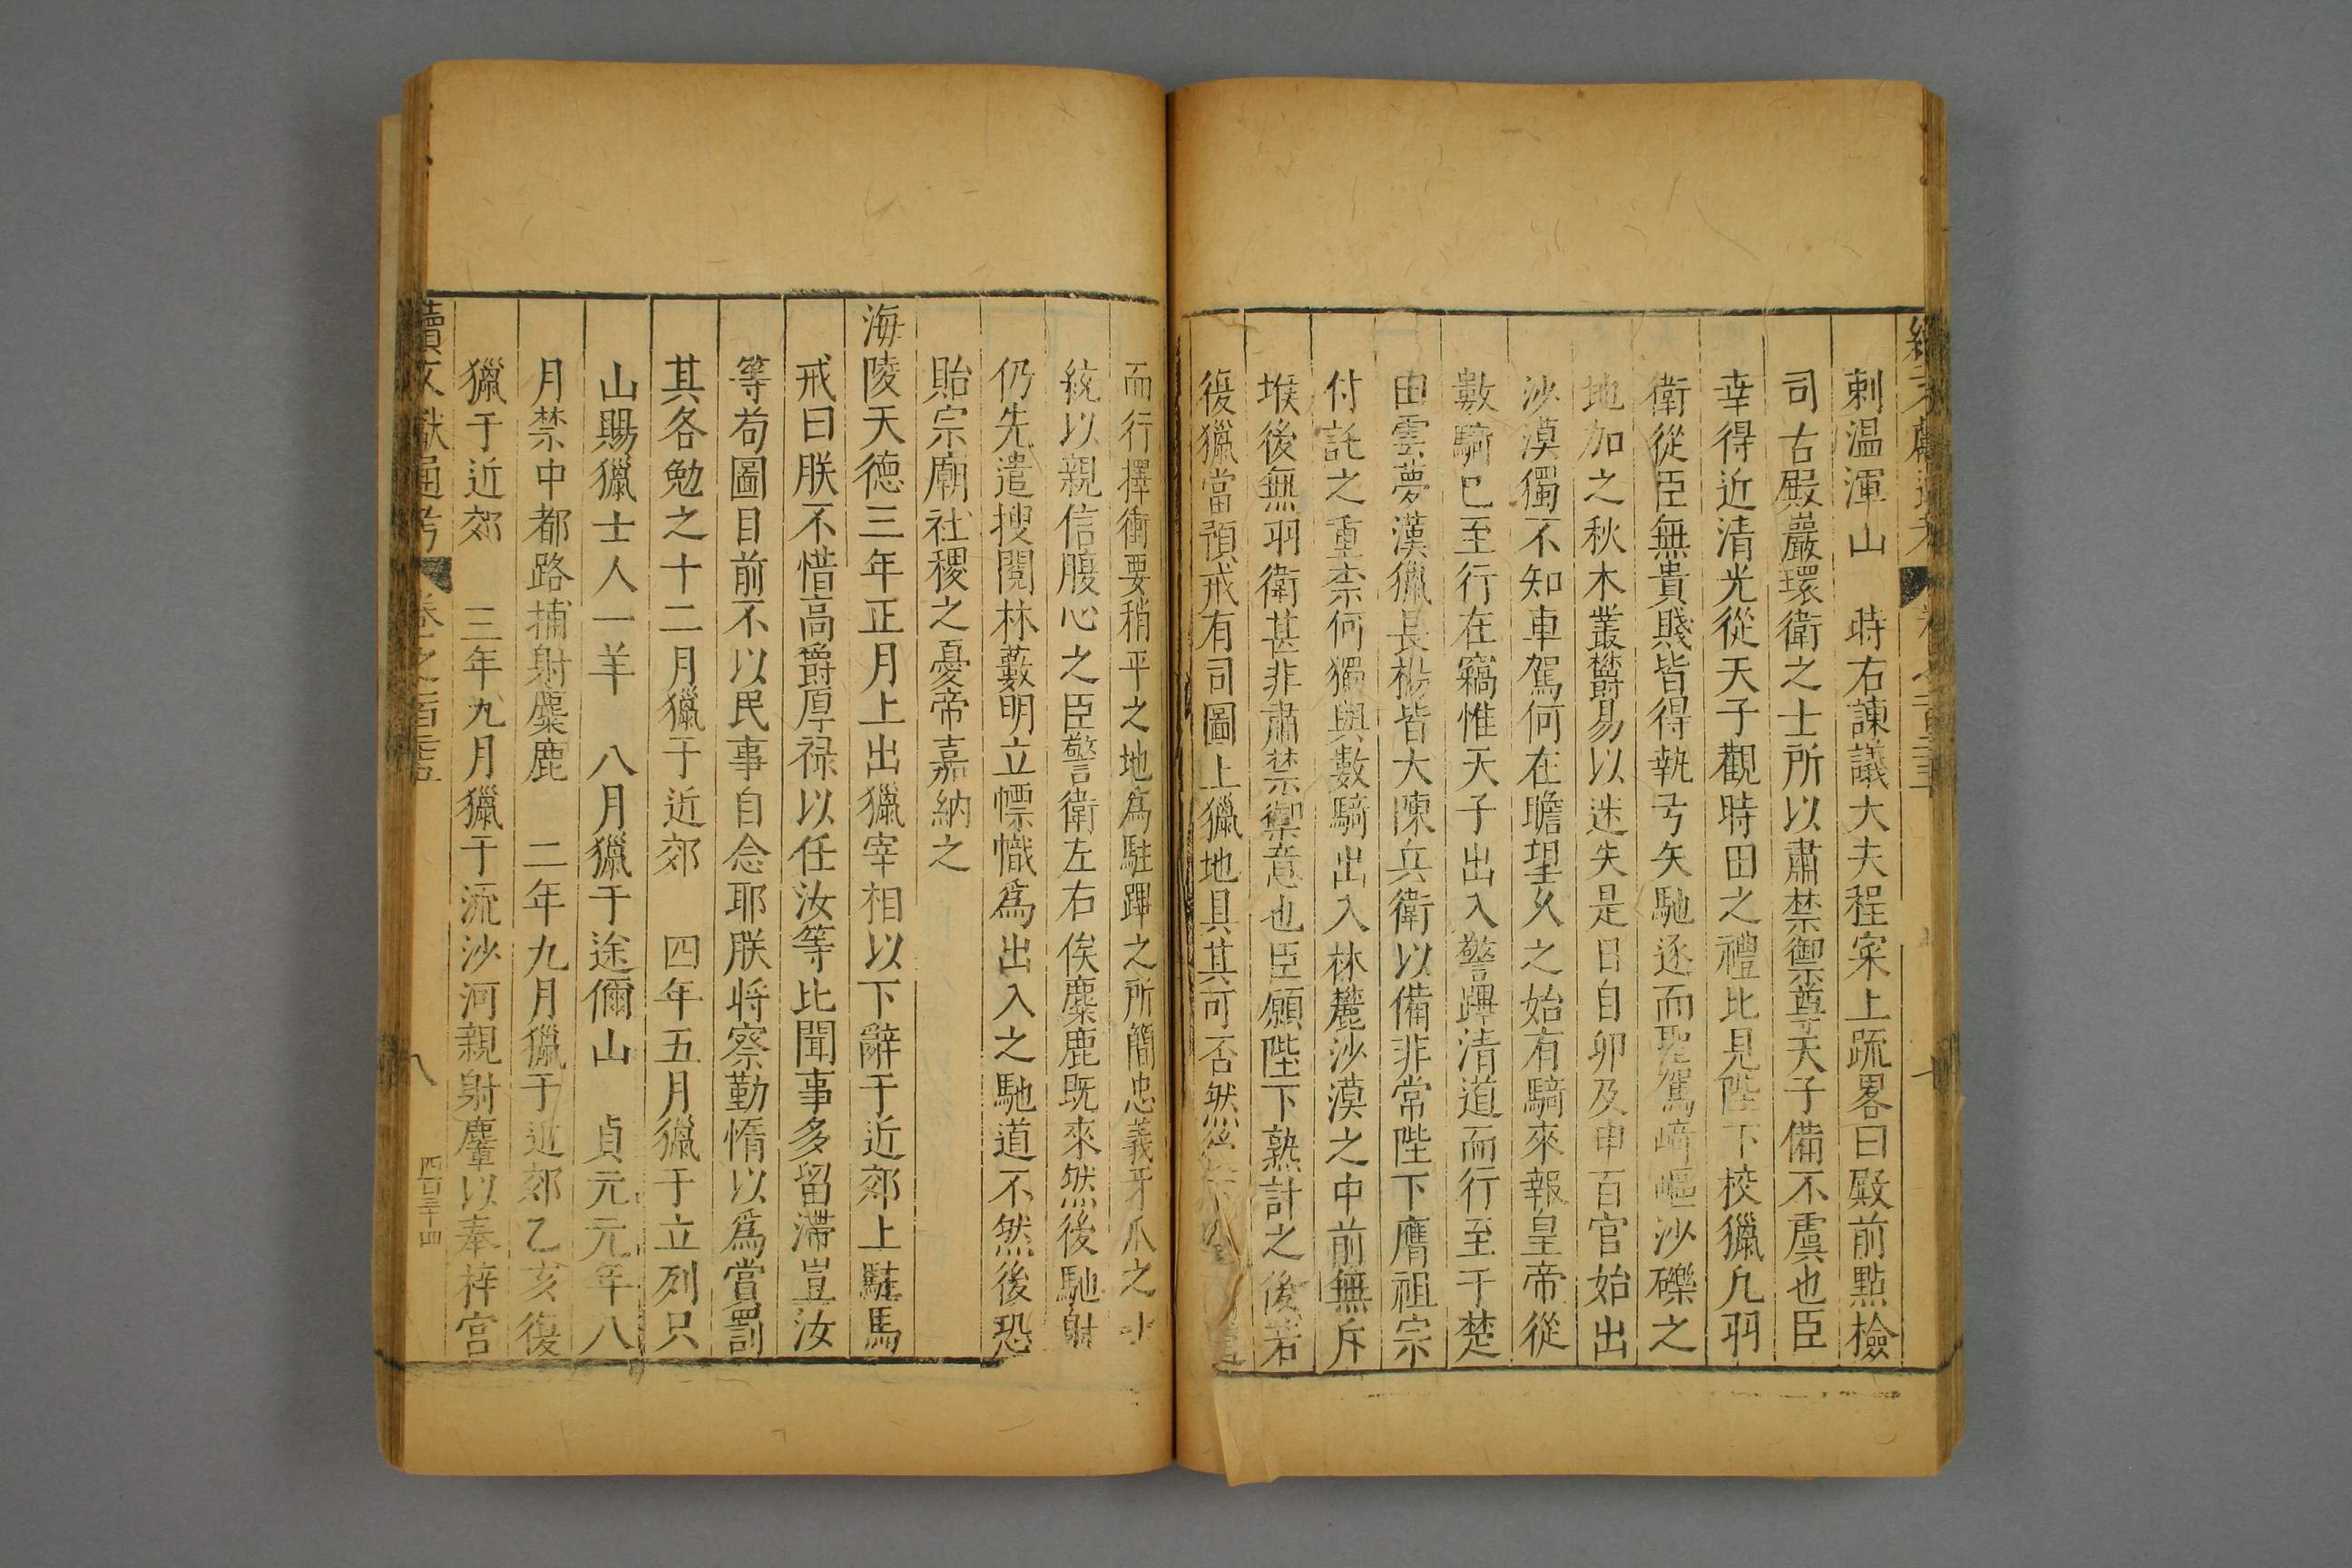 剌温渾山　時右諫議大夫程寀上疏畧曰殿前點檢
司古殿巖環衛之士所以肅禁禦尊天子備不虞也臣
幸得近清光從天子觀時田之禮比見陛下校獵凡羽
衛從臣無貴賤皆得執弓矢馳逐而聖駕崎嶇沙礫之
地加之秋木叢欝易以迷失是日自卯及申百官始出
沙漠獨不知車駕何在瞻望久之始有騎來報皇帝從
數騎已至行在竊惟天子出入警蹕清道而行至于楚
田雲夢漢獵長楊皆大陳兵衛以備非常陛下膺祖宗
付託之重柰何獨與數騎出入林麓沙漠之中前無斥
堠後無羽衛甚非肅禁禦意也臣願陛下熟計之後若
復獵當預戒有司圖上獵地具其可否然後
而行擇衝要稍平之地爲駐蹕之所簡忠義牙爪之士
統以親信腹心之臣警衛左右俟麋鹿既來然後馳射
仍先遣搜閱林藪明立幖幟爲出入之馳道不然後恐
貽宗廟社稷之憂帝嘉納之
海陵天德三年正月上出獵宰相以下辭于近郊上駐馬
戒曰朕不惜高爵厚禄以任汝等比聞事多留滯豈汝
等苟圖目前不以民事自念耶朕將察勤惰以爲賞罰
其各勉之十二月獵于近郊　四年五月獵于立列只
山賜獵士人一羊　八月獵于途儞山　貞元元年八
月禁中都路捕射麋鹿　二年九月獵于近郊乙亥復
獵于近郊　三年九月獵于流沙河親射麞以奉梓宫
續文獻通考　卷之
八
四百三十四